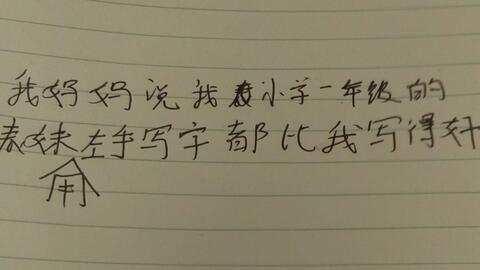 我妈妈说我表小学一年级的
表妹用左手写字都比我写得好